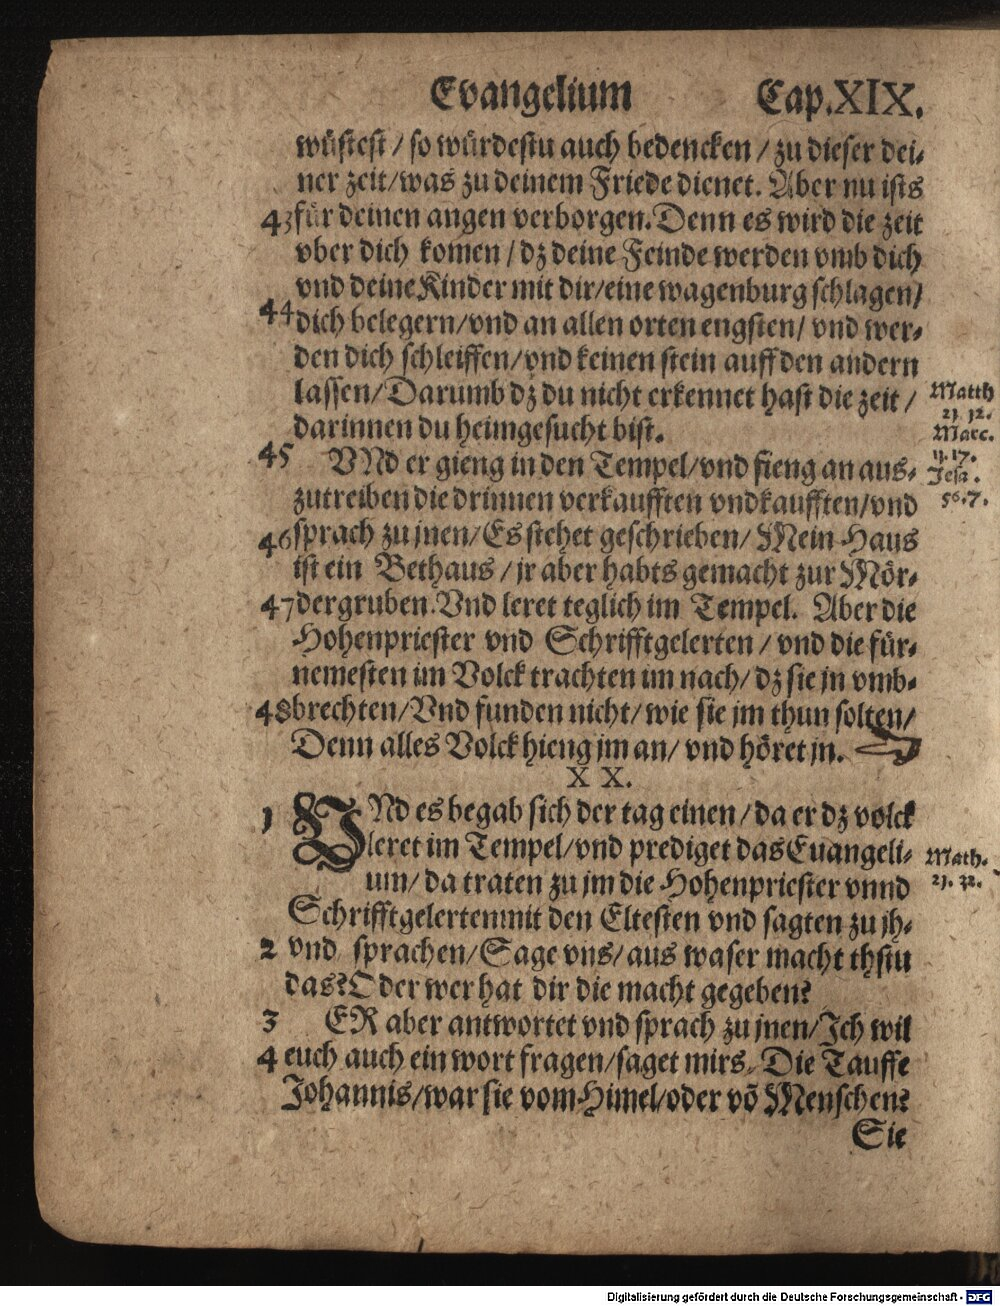 Evangelium Cap. XIX.
wüstest / so würdestu auch bedencken / zu dieser dei-
ner zeit/was zu deinem Friede dienet. Aber nu ists
43 für deinen angen verborgen. Denn es wird die zeit
vber dich komen / dz deine Feinde werden vmb dich
vnd deine Kinder mit dir/eine wagenburg schlagen/
44 dich belegern/vnd an allen orten engsten/ vnd wer-
den dich schleiffen/vnd keinen stein auff den andern
lassen/Darumb dz du nicht erkennet hast die zeit /
darinnen du heimgesucht bist.
Matth
21. 12.
Marc.
11. 17.
Jesa.
56. 7.
45 VNd er gieng in den Tempel/vnd fieng an aus-
zutreiben die drinnen verkaufften vnd kaufften/vnd
46 sprach zu jnen/Es stehet geschrieben/ Mein Haus
ist ein Bethaus / jr aber habts gemacht zur Mör-
47 dergruben. Vnd leret teglich im Tempel. Aber die
Hohenpriester vnd Schrifftgelerten / vnd die für-
nemesten im Volck trachten im nach/ dz sie jn vmb-
48 brechten/Vnd funden nicht/ wie sie jm thun solten/
Denn alles Volck hieng jm an/ vnd höret jn.
XX.
1 VNd es begab sich der tag einen / da er dz volck
leret im Tempel/vnd prediget das Euangeli-
um/ da traten zu jm die Hohenpriester vnnd
Math.
21. 32.
Schrifftgelerten mit den Eltesten vnd sagten zu jh-
2 vnd sprachen/Sage vns/ aus waser macht thstu
das? Oder wer hat dir die macht gegeben?
3 ER aber antwortet vnd sprach zu jnen/Jch wil
4 euch auch ein wort fragen/saget mirs. Die Tauffe
Johannis/war sie vom Himel/oder võ Menschen?
Sie
Digitalisierung gefördert durch die Deutsche Forschungsgemeinschaft - DFG